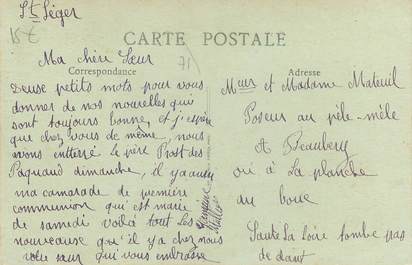 St Léger
15€
CARTE POSTALE
71
Ma chère Sœur
Correspondance
Adresse
Deuse petits mots pour vous
donner de nos nouvelles qui
sont toujours bonne et j'espère
que chez vous de même, nous
avons entterré le père Prost des
Paquaud dimanche, il y a aueu
ma camarade de première
communion qui est marié
de samedi voilà tout les
nouveause que il y a chez nous
votre sœur qui vous embrasse
Meur et Madame Mateuil
Poseur au pêle-mêle
A Beaubery
ou à La planche
au boue
Saute La Loire tombe pas
de dant